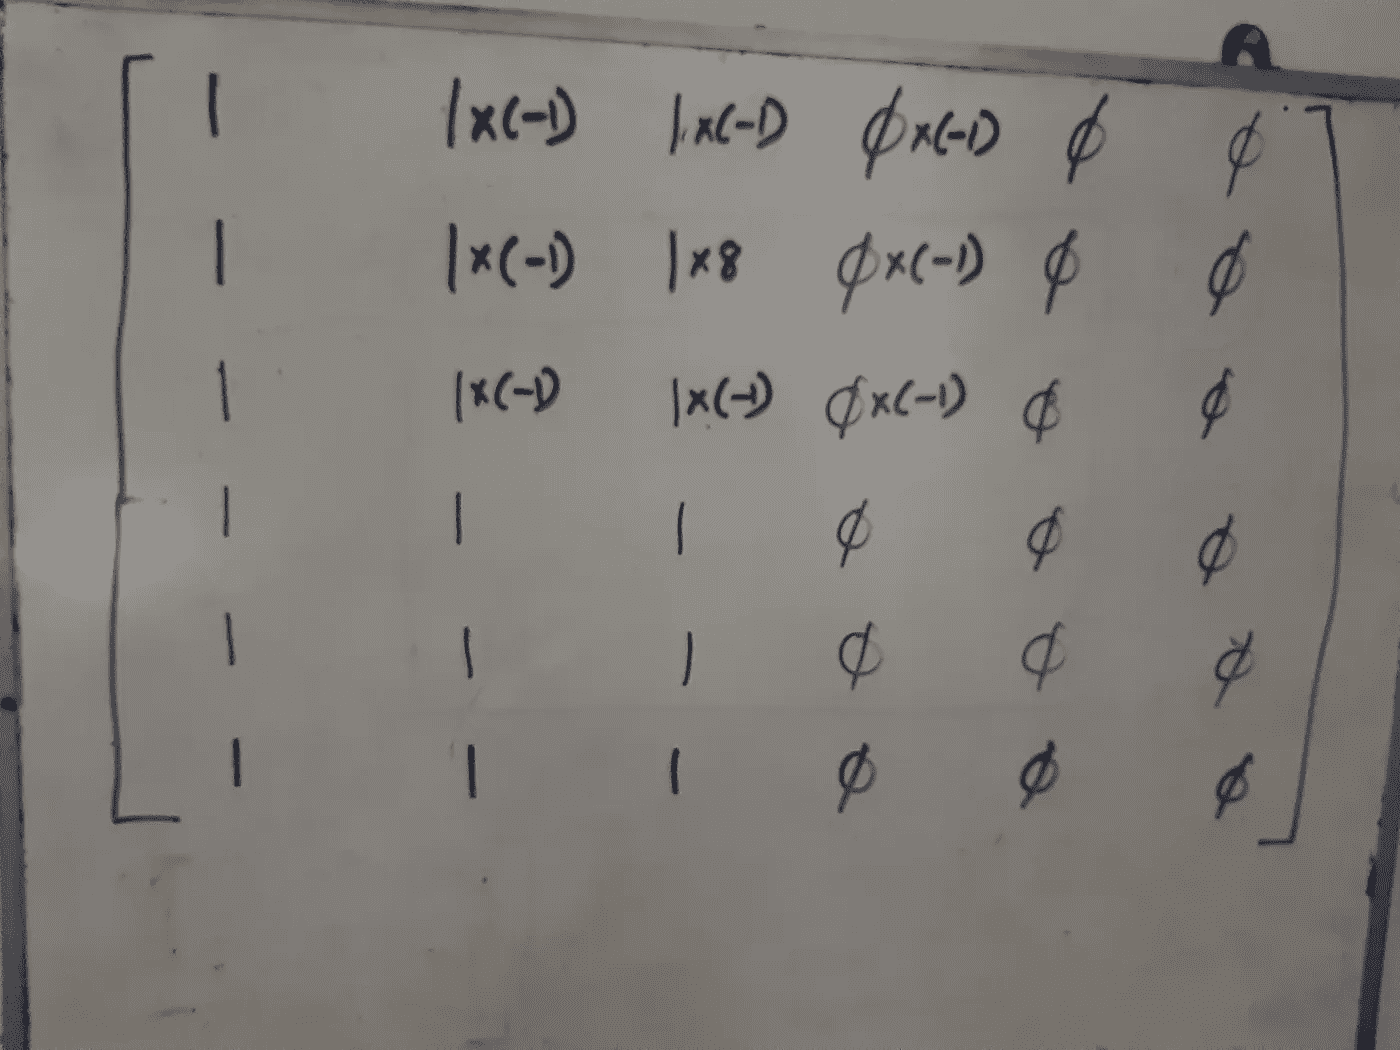 1 1×(-1) 1×(-1) ϕ×(-1) ϕ ϕ
1 1×(-1) 1×8 ϕ×(-1) ϕ ϕ
1 1×(-1) 1×(-1) ϕ×(-1) ϕ ϕ
1 1 1 ϕ ϕ ϕ
1 1 1 ϕ ϕ ϕ
1 1 1 ϕ ϕ ϕ